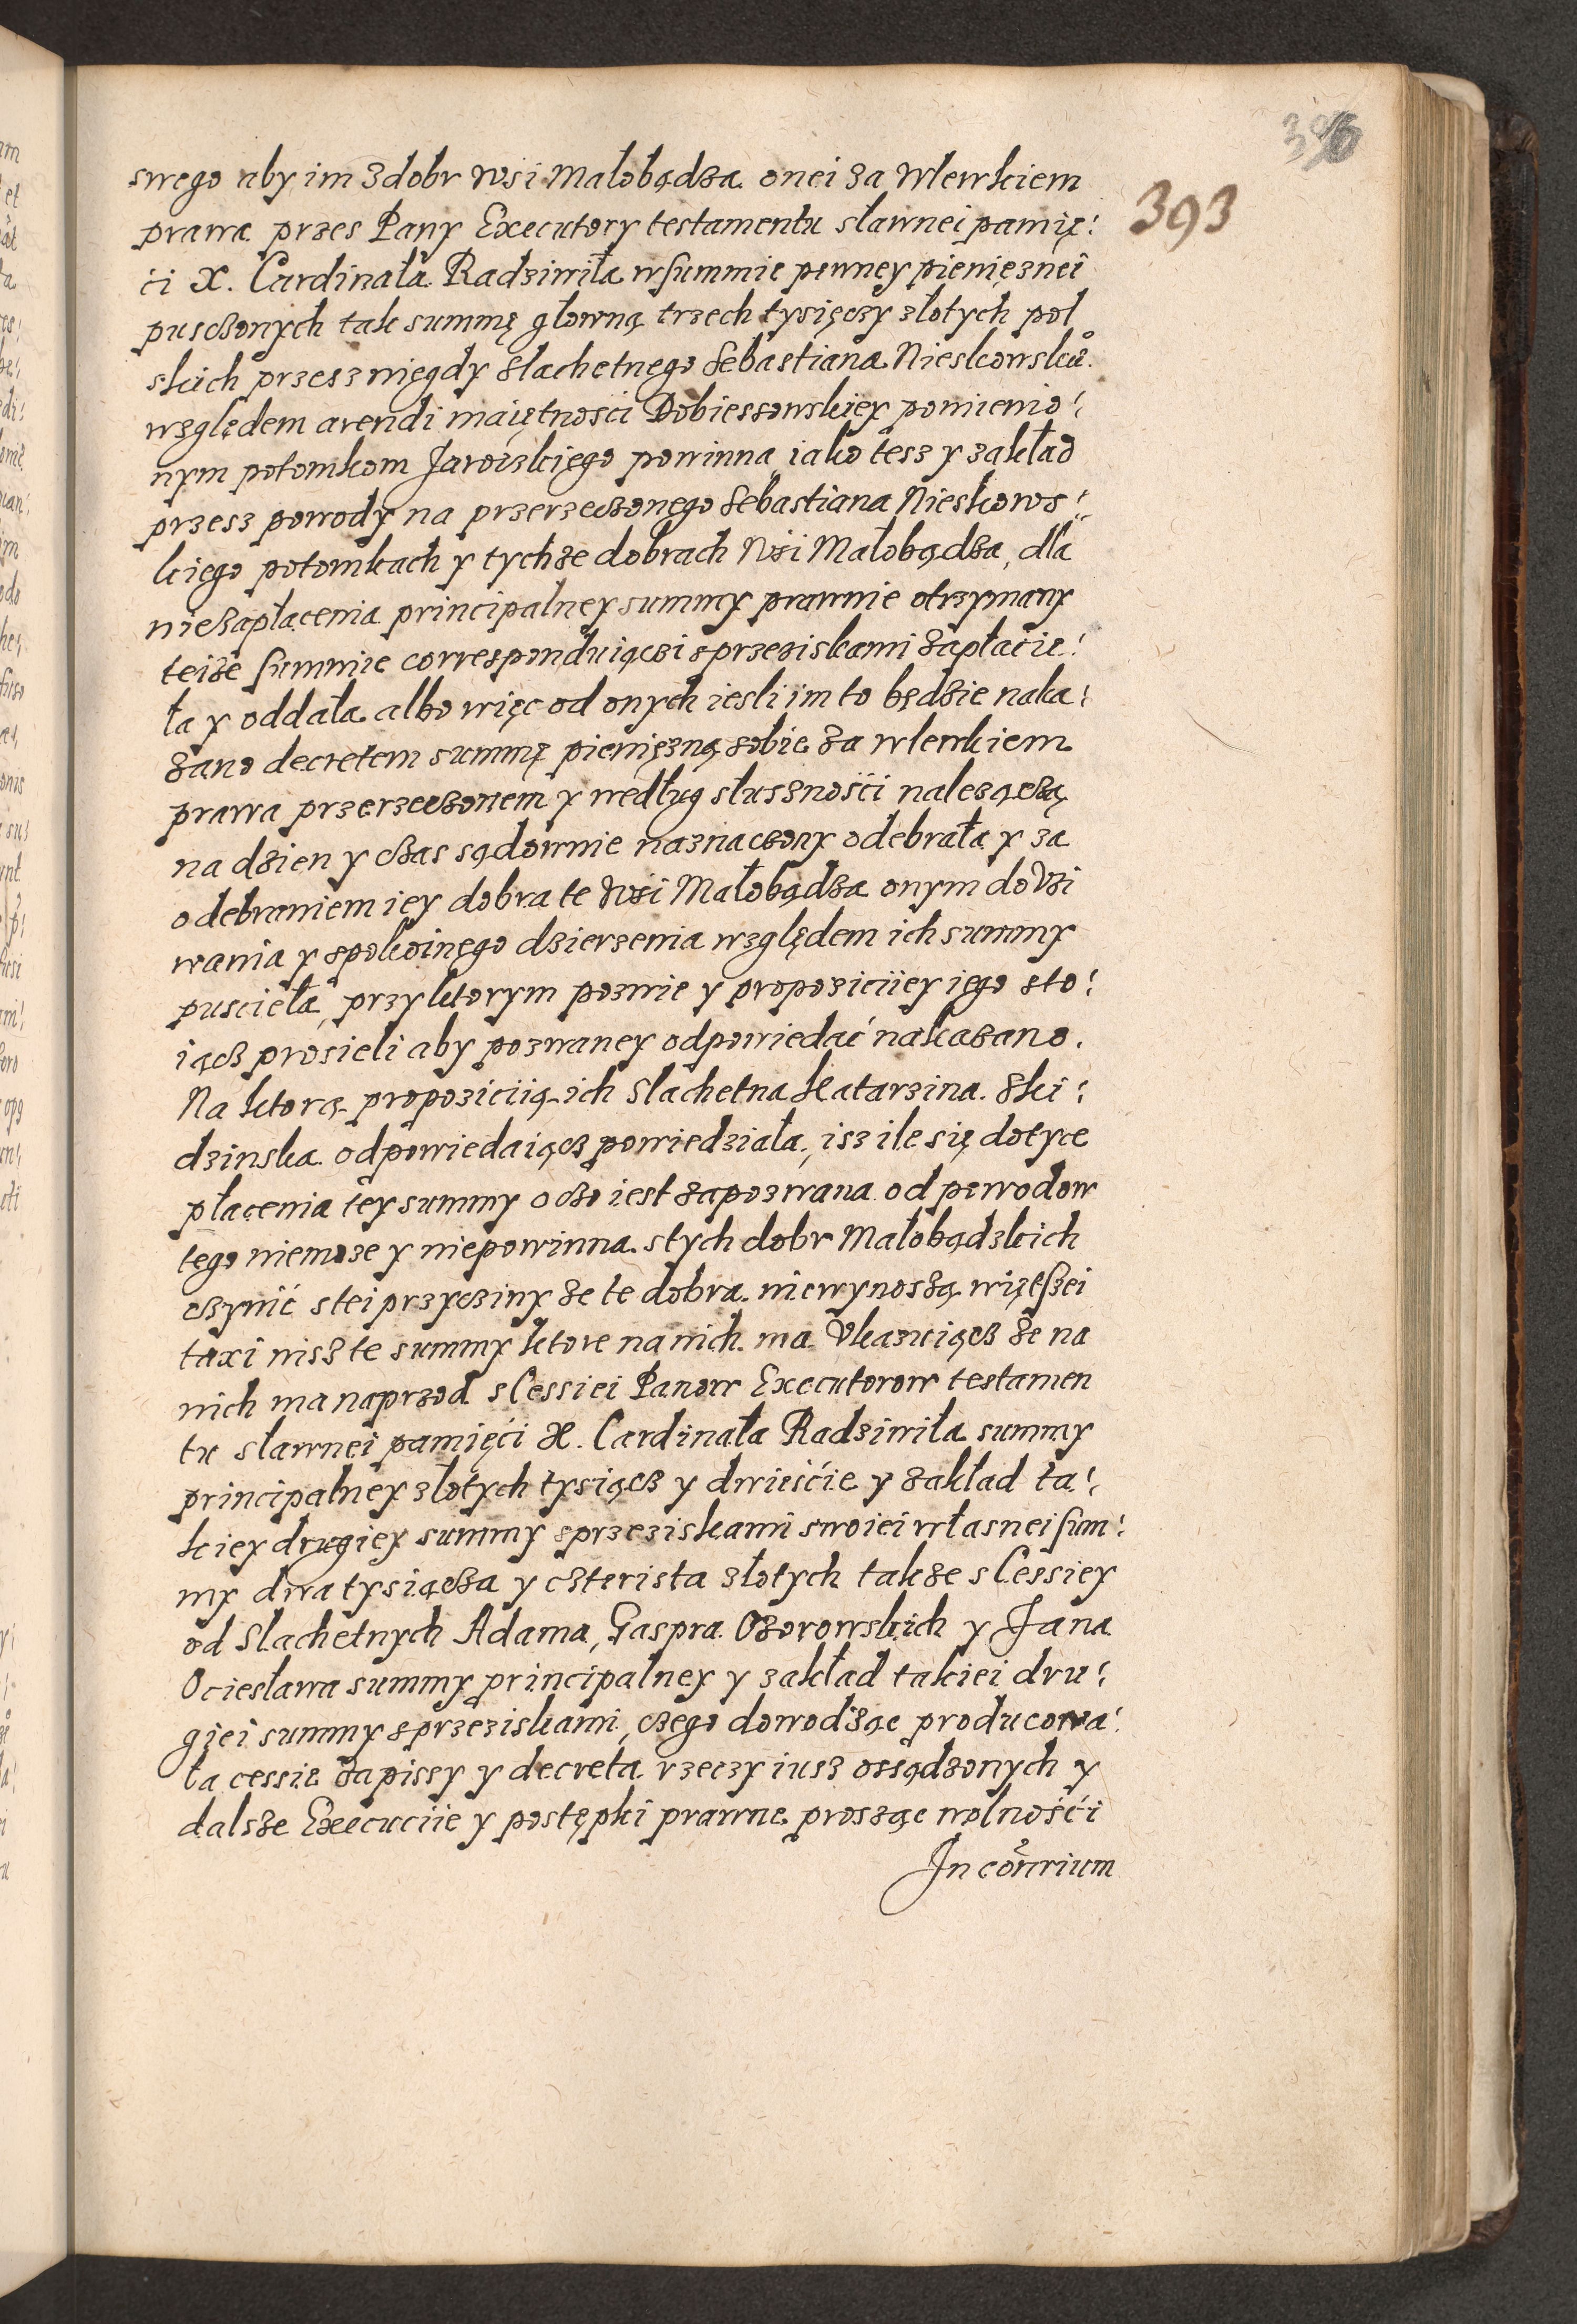 396
393
swego aby im z dobr wsi Malobądza onei za wlewkiem
prawa przes Pany Executory testamentu slawnei pamię:
ci X. Cardinała Radziwiła w summie pewney pienięznei
pusczonych tak summę głowną trzech tysięczy złotych pol
skich przesz niegdy slachetnego Sebastiana Nieskowskio
względem arendi maiętnosci Dobiessowskiey pomienio:
nym potomkom Jaroiskięgo powinną iako tesz y zakład
przesz powody na przerzeczonęgo Sebastiana Nieskows:
kięgo potomkach y tychze dobrach Wsi Małobądza, dla
niezapłacenia principalney summy prawnie otrzymany
teize summie correspondуiączi sprzeziskami zapłacie:
ła y oddała albo więc od onych iesli im to będzie naka:
zano decretem summę pienięzną sobie za wlewkiem
prawa przerzeczonem y według slusznosći nalezączą
na dzien y czas sądownie naznaczony odebrała y za
odebraniem iey dobra te Wsi Małobądza onym do Vzi
wania y spokoinęgo dzierzenia względem ich summy
pusciełа, przy ktorym pozwie y propoziciiey iego sto:
iącz prosieli aby pozwaney odpowiedać nakazano.
Na ktorą propoziciią ich Slachetna Katarzina Ski:
dzinska odpowiedaiącz powiedziała, isz ile się dotyce
płacenia tey summy o czo iest zapozwana od powodow
tego niemoze y niepowinna stych dobr Małobądzkich
czynić stei przycziny ze te dobra niewynoszą więtszei
taxi nisz te summy ktore na nich ma Vkazuiącz ze na
nich ma naprzod s Cessiei Panow Executorow testamen
tu sławnei pamięći X. Cardinała Radziwiła summy
principalney złotych tysiącz y dwieśćie y zakład ta:
kiey drugiey summy sprzeziskami swoiei własnei sum:
my dwa tysiącza y czterista złotych takze s Cessiey
od Slachetnych Adama, Gaspra Ozorowskich y Jana
Ociesława summy principalney y zakład takiei dru:
giei summy sprzeziskami, czego dowodząc producowa:
ła cessie zapissy y decreta rzeczy iusz ossądzonych y
dalsze Execuciie y postępki prawne prosząc wolnośći
In contrarium